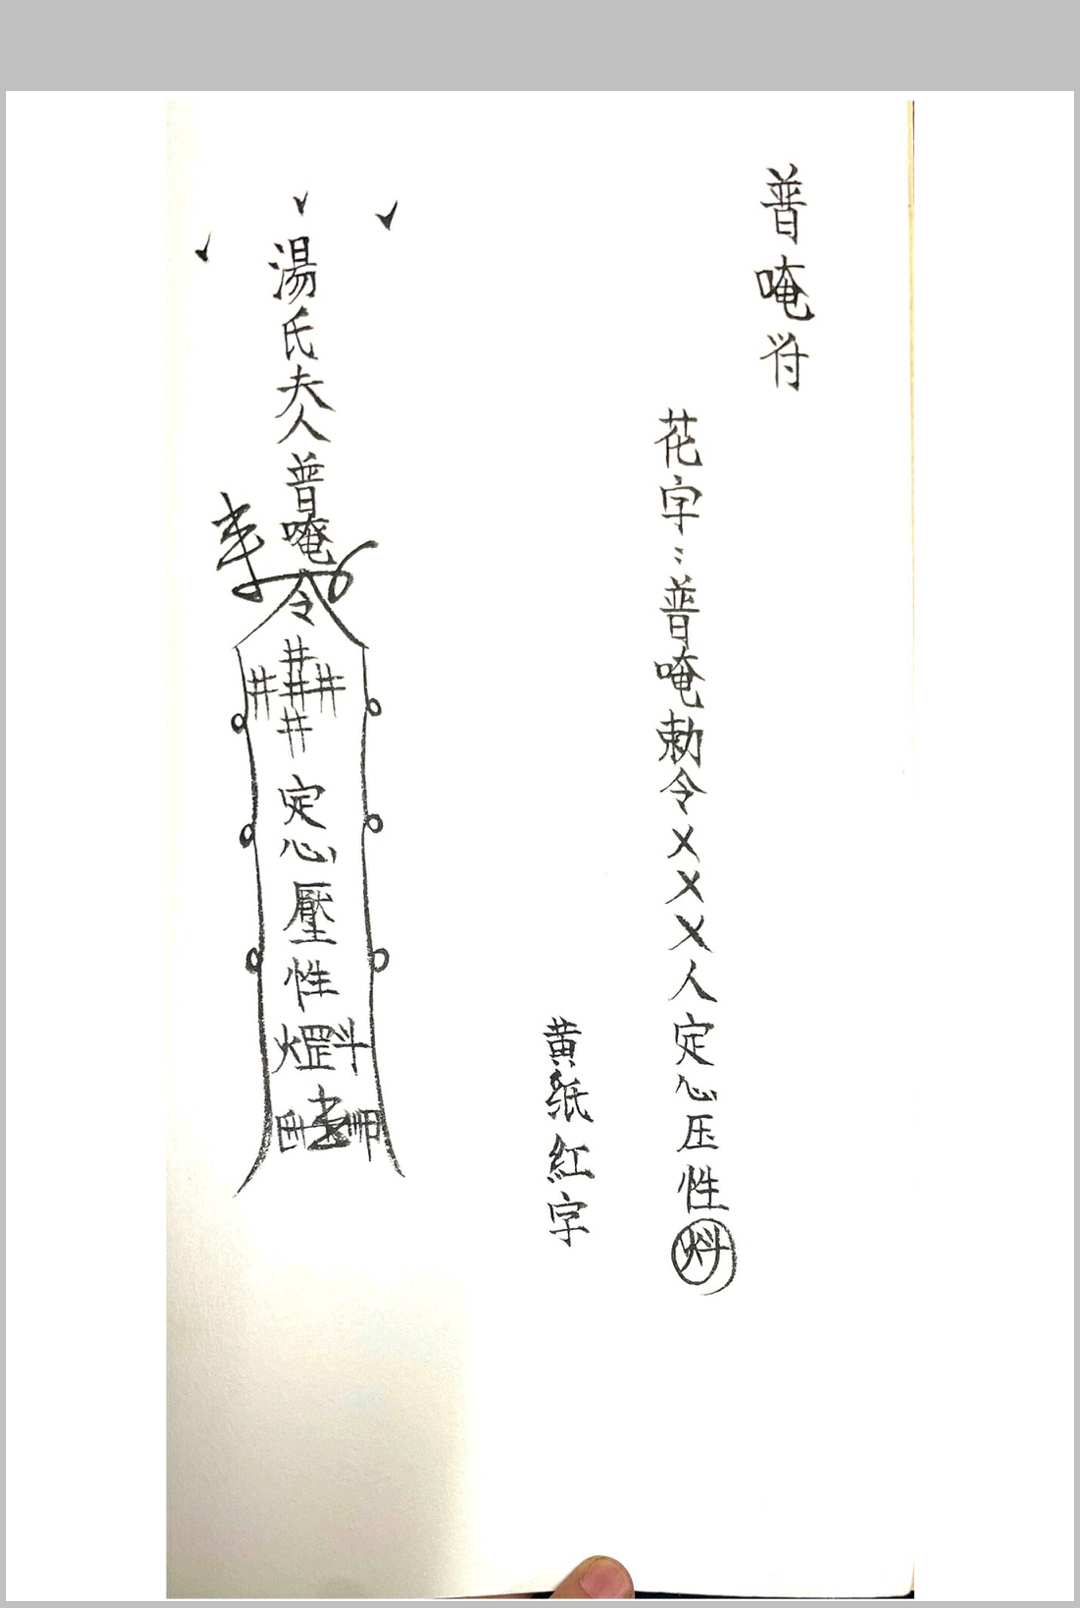 普唵符
花字：普唵勅令XXX人定心压性
黄紙紅字
湯氏夫人普唵
令
井
井井井
井
定心壓性